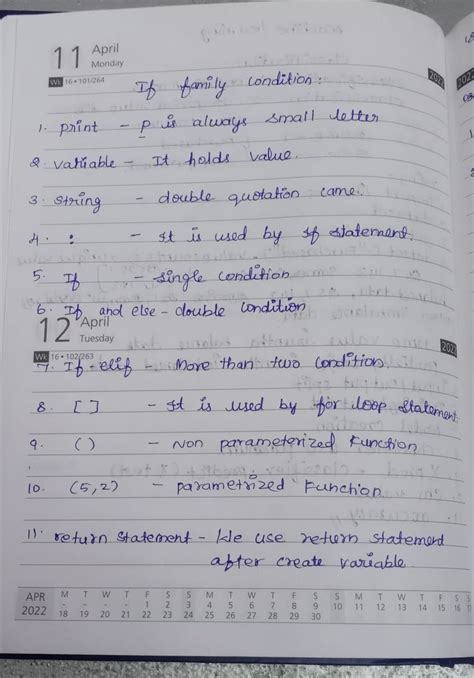 11 April
Monday
Wk 16 • 101/264
2022
If family condition:
1. print - p is always small letter
2. variable - It holds value.
3. string - double quotation came.
4. : - It is used by if statement.
5. If - single condition
6. If and else - double condition
12 April
Tuesday
Wk 16 • 102/263
2022
7. If - elif - More than two condition
8. [ ] - It is used by for loop statement
9. ( ) - Non parameterized Function
10. (5,2) - parametrized Function.
11. return statement - We use return statement
after create variable.
APR M T W T F S S M T W T F S S M T W T F S S
2022 - - - - 1 2 3 4 5 6 7 8 9 10 11 12 13 14 15 16
18 19 20 21 22 23 24 25 26 27 28 29 30